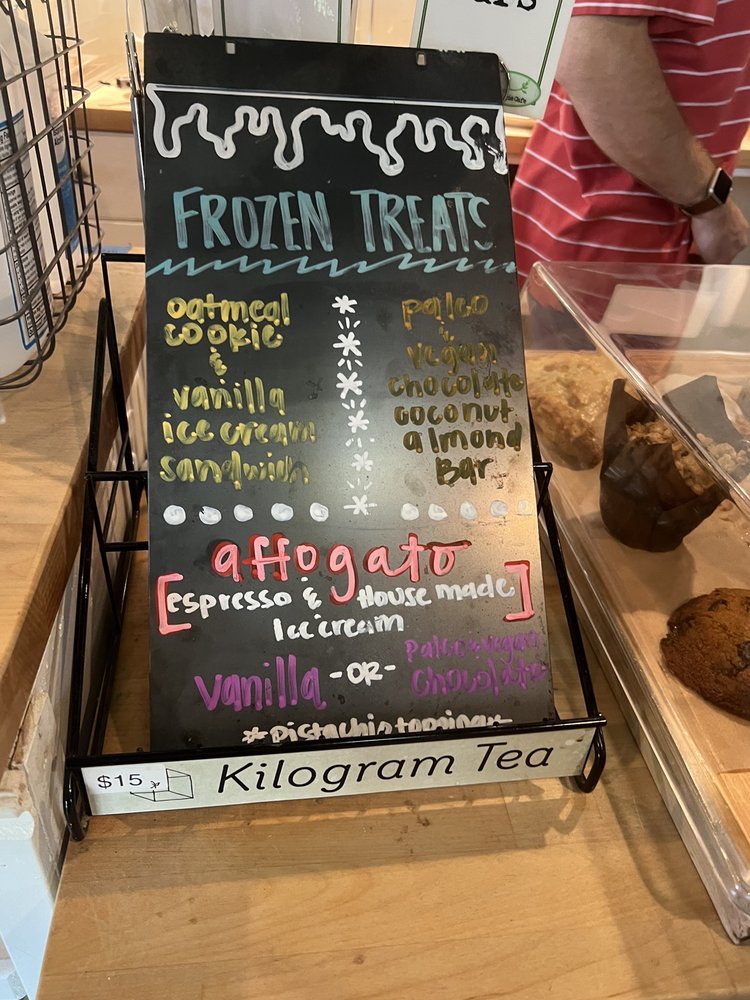 FROZEN TREATS
oatmeal
cookie
&
vanilla
ice cream
sandwich
paleo
&
vegan
chocolate
coconut
almond
Bar
affogato
[espresso & House made]
Ice cream
vanilla -OR- Paleo & vegan
chocolate
*Pistachio topping*
$15 Kilogram Tea